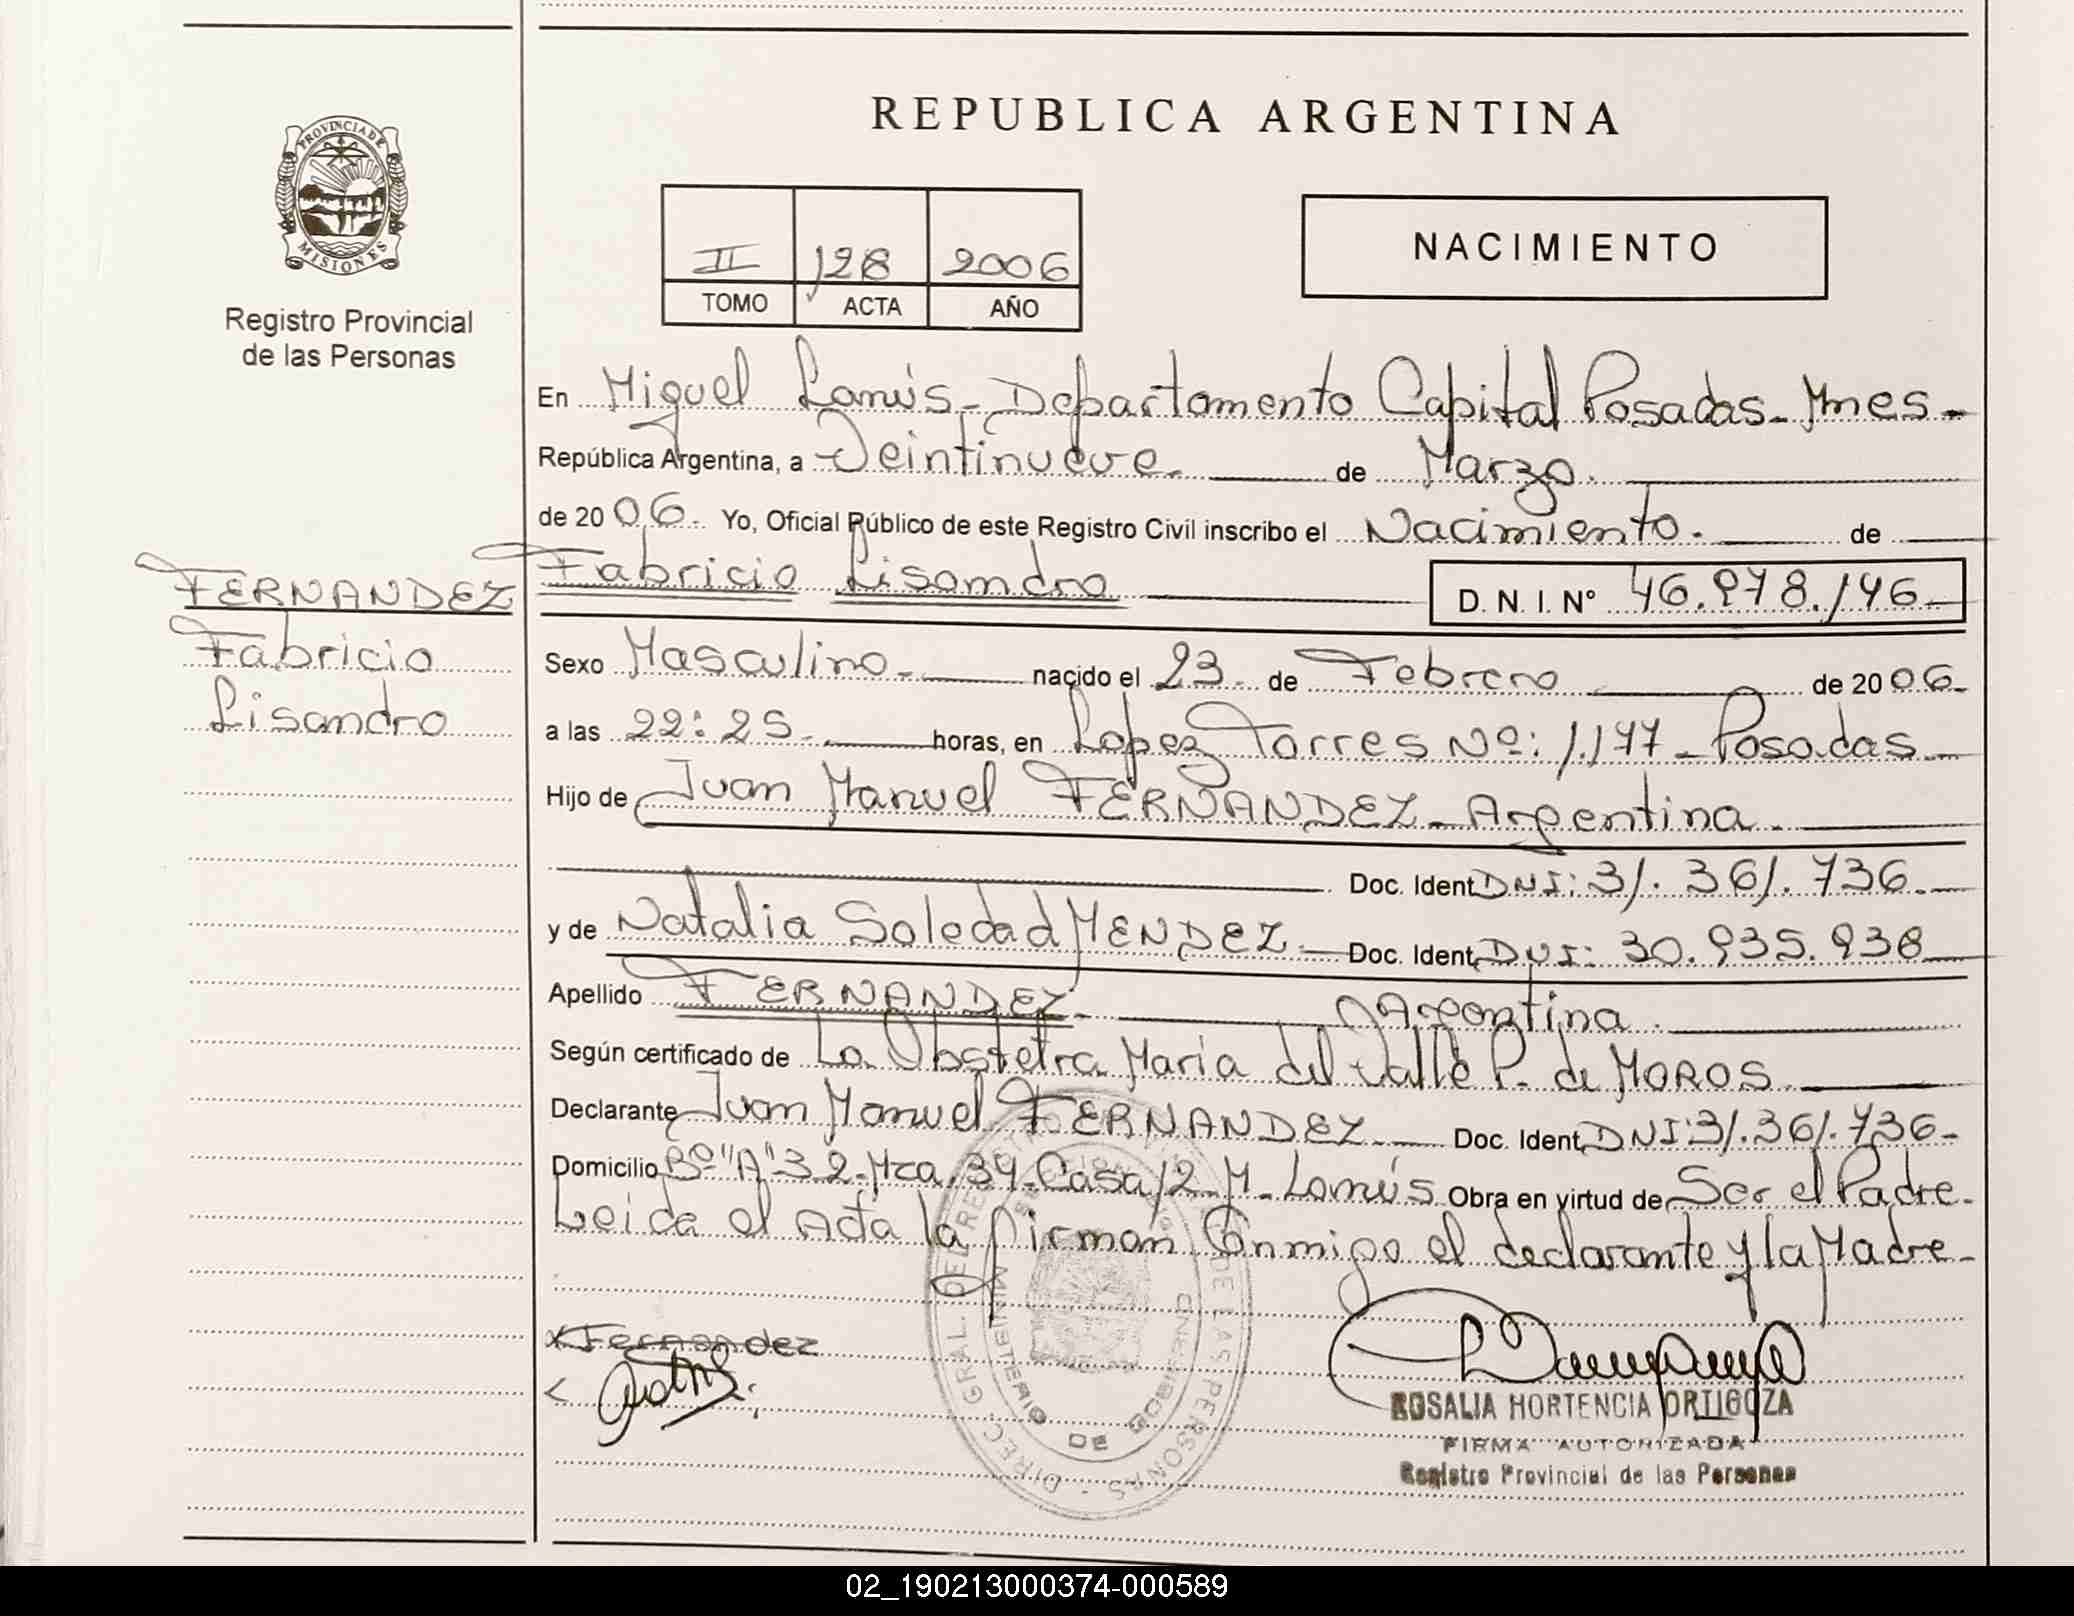 REPUBLICA ARGENTINA
PROVINCIA DE MISIONES
Registro Provincial
de las Personas
II 128 2006
TOMO ACTA AÑO
NACIMIENTO
En Miguel Lanús - Departamento Capital Posadas - Mnes -
República Argentina, a Veintinueve. de Marzo.
de 2006. Yo, Oficial Público de este Registro Civil inscribo el Nacimiento. de
FERNANDEZ
Fabricio
Lisandro
Fabricio Lisandro D. N. I. Nº 46.978.146
Sexo Masculino. nacido el 23 de Febrero de 2006.
a las 22:25. horas, en Lopez Torres Nº: 1.177 - Posadas
Hijo de Juan Manuel FERNANDEZ - Argentina.
Doc. Ident. DNI: 31.361.736.
y de Natalia Soledad MENDEZ. Doc. Ident. DNI: 30.935.938
Apellido FERNANDEZ. Argentina.
Según certificado de La Obstetra Maria del Valle P. de MOROS
Declarante Juan Manuel FERNANDEZ Doc. Ident. DNI: 31.361.736-
Domicilio Bº "A" 32 - Mza. 39 - Casa 12 - M - Lanús Obra en virtud de Ser el Padre.
Leida el Acta la firman Conmigo el declarante y la Madre -
x Fernandez
ROSALIA HORTENCIA ORTIGOZA
FIRMA AUTORIZADA
Registro Provincial de las Personas
DIREC. GRAL. DEL REGISTRO DE LAS PERSONAS
MINISTERIO DE GOBIERNO
02_190213000374-000589